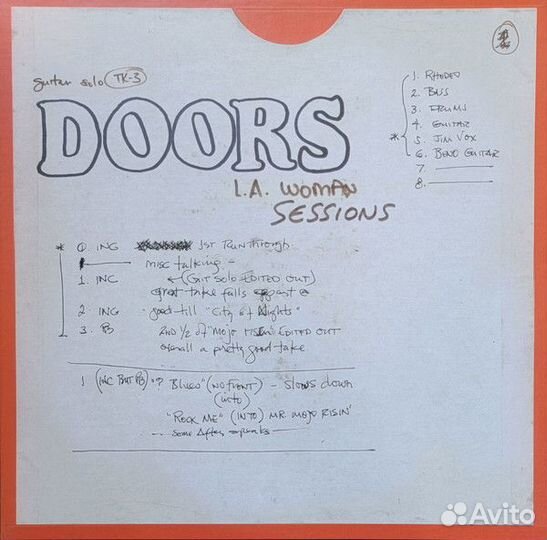 guitar solo TK-3
DOORS
L.A. WOMAN
SESSIONS
1. RHODES
2. BASS
3. DRUMS
4. GUITAR
* 5. JIM VOX
6. BEND GUITAR
7.
8.
* 0. INC 1ST RUN through
misc talking -
1. INC ← (GIT SOLO EDITED OUT)
great take falls apart @
2 INC good till "City of Nights"
3. PB 2ND 1/2 of "MOJO RISEN" EDITED OUT
overall a pretty good take
1 (INC BUT PB) ·? Blues" (NO FRONT) - Slows down
(INTO)
"ROCK ME" (INTO) MR MOJO RISIN'
- some After speaks -
Avito